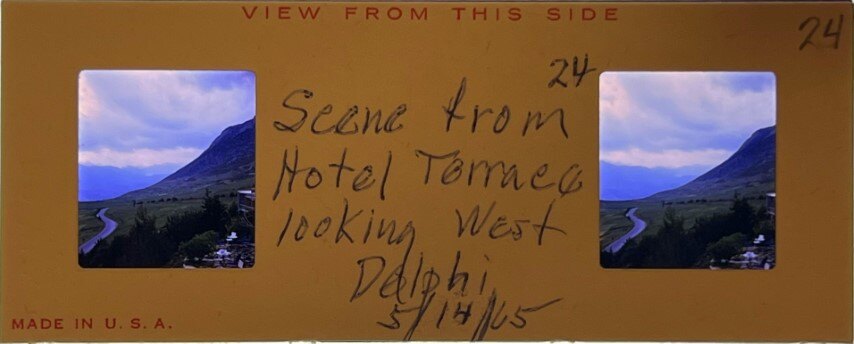 VIEW FROM THIS SIDE
24
24
Scene from
Hotel Terrace
looking West
Delphi
5/14/65
MADE IN U.S.A.